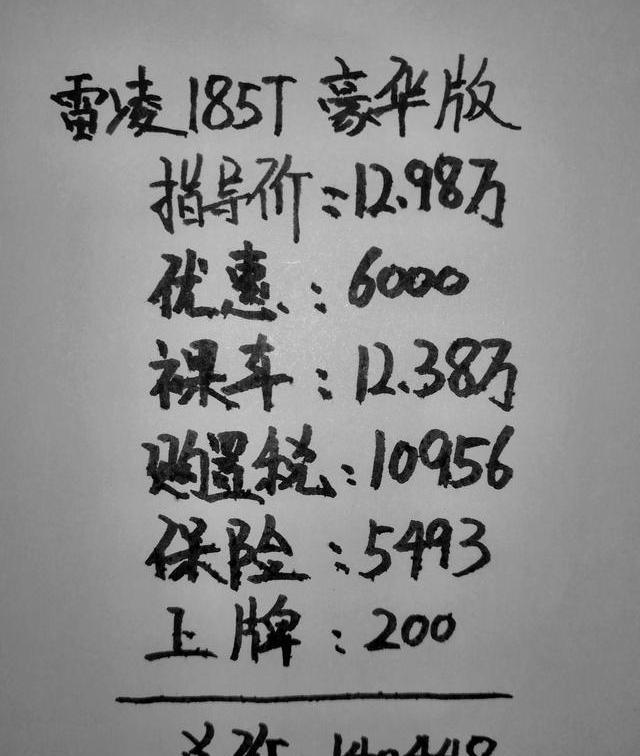 雷凌185T 豪华版
指导价:12.98万
优惠:6000
裸车:12.38万
购置税:10956
保险:5493
上牌:200